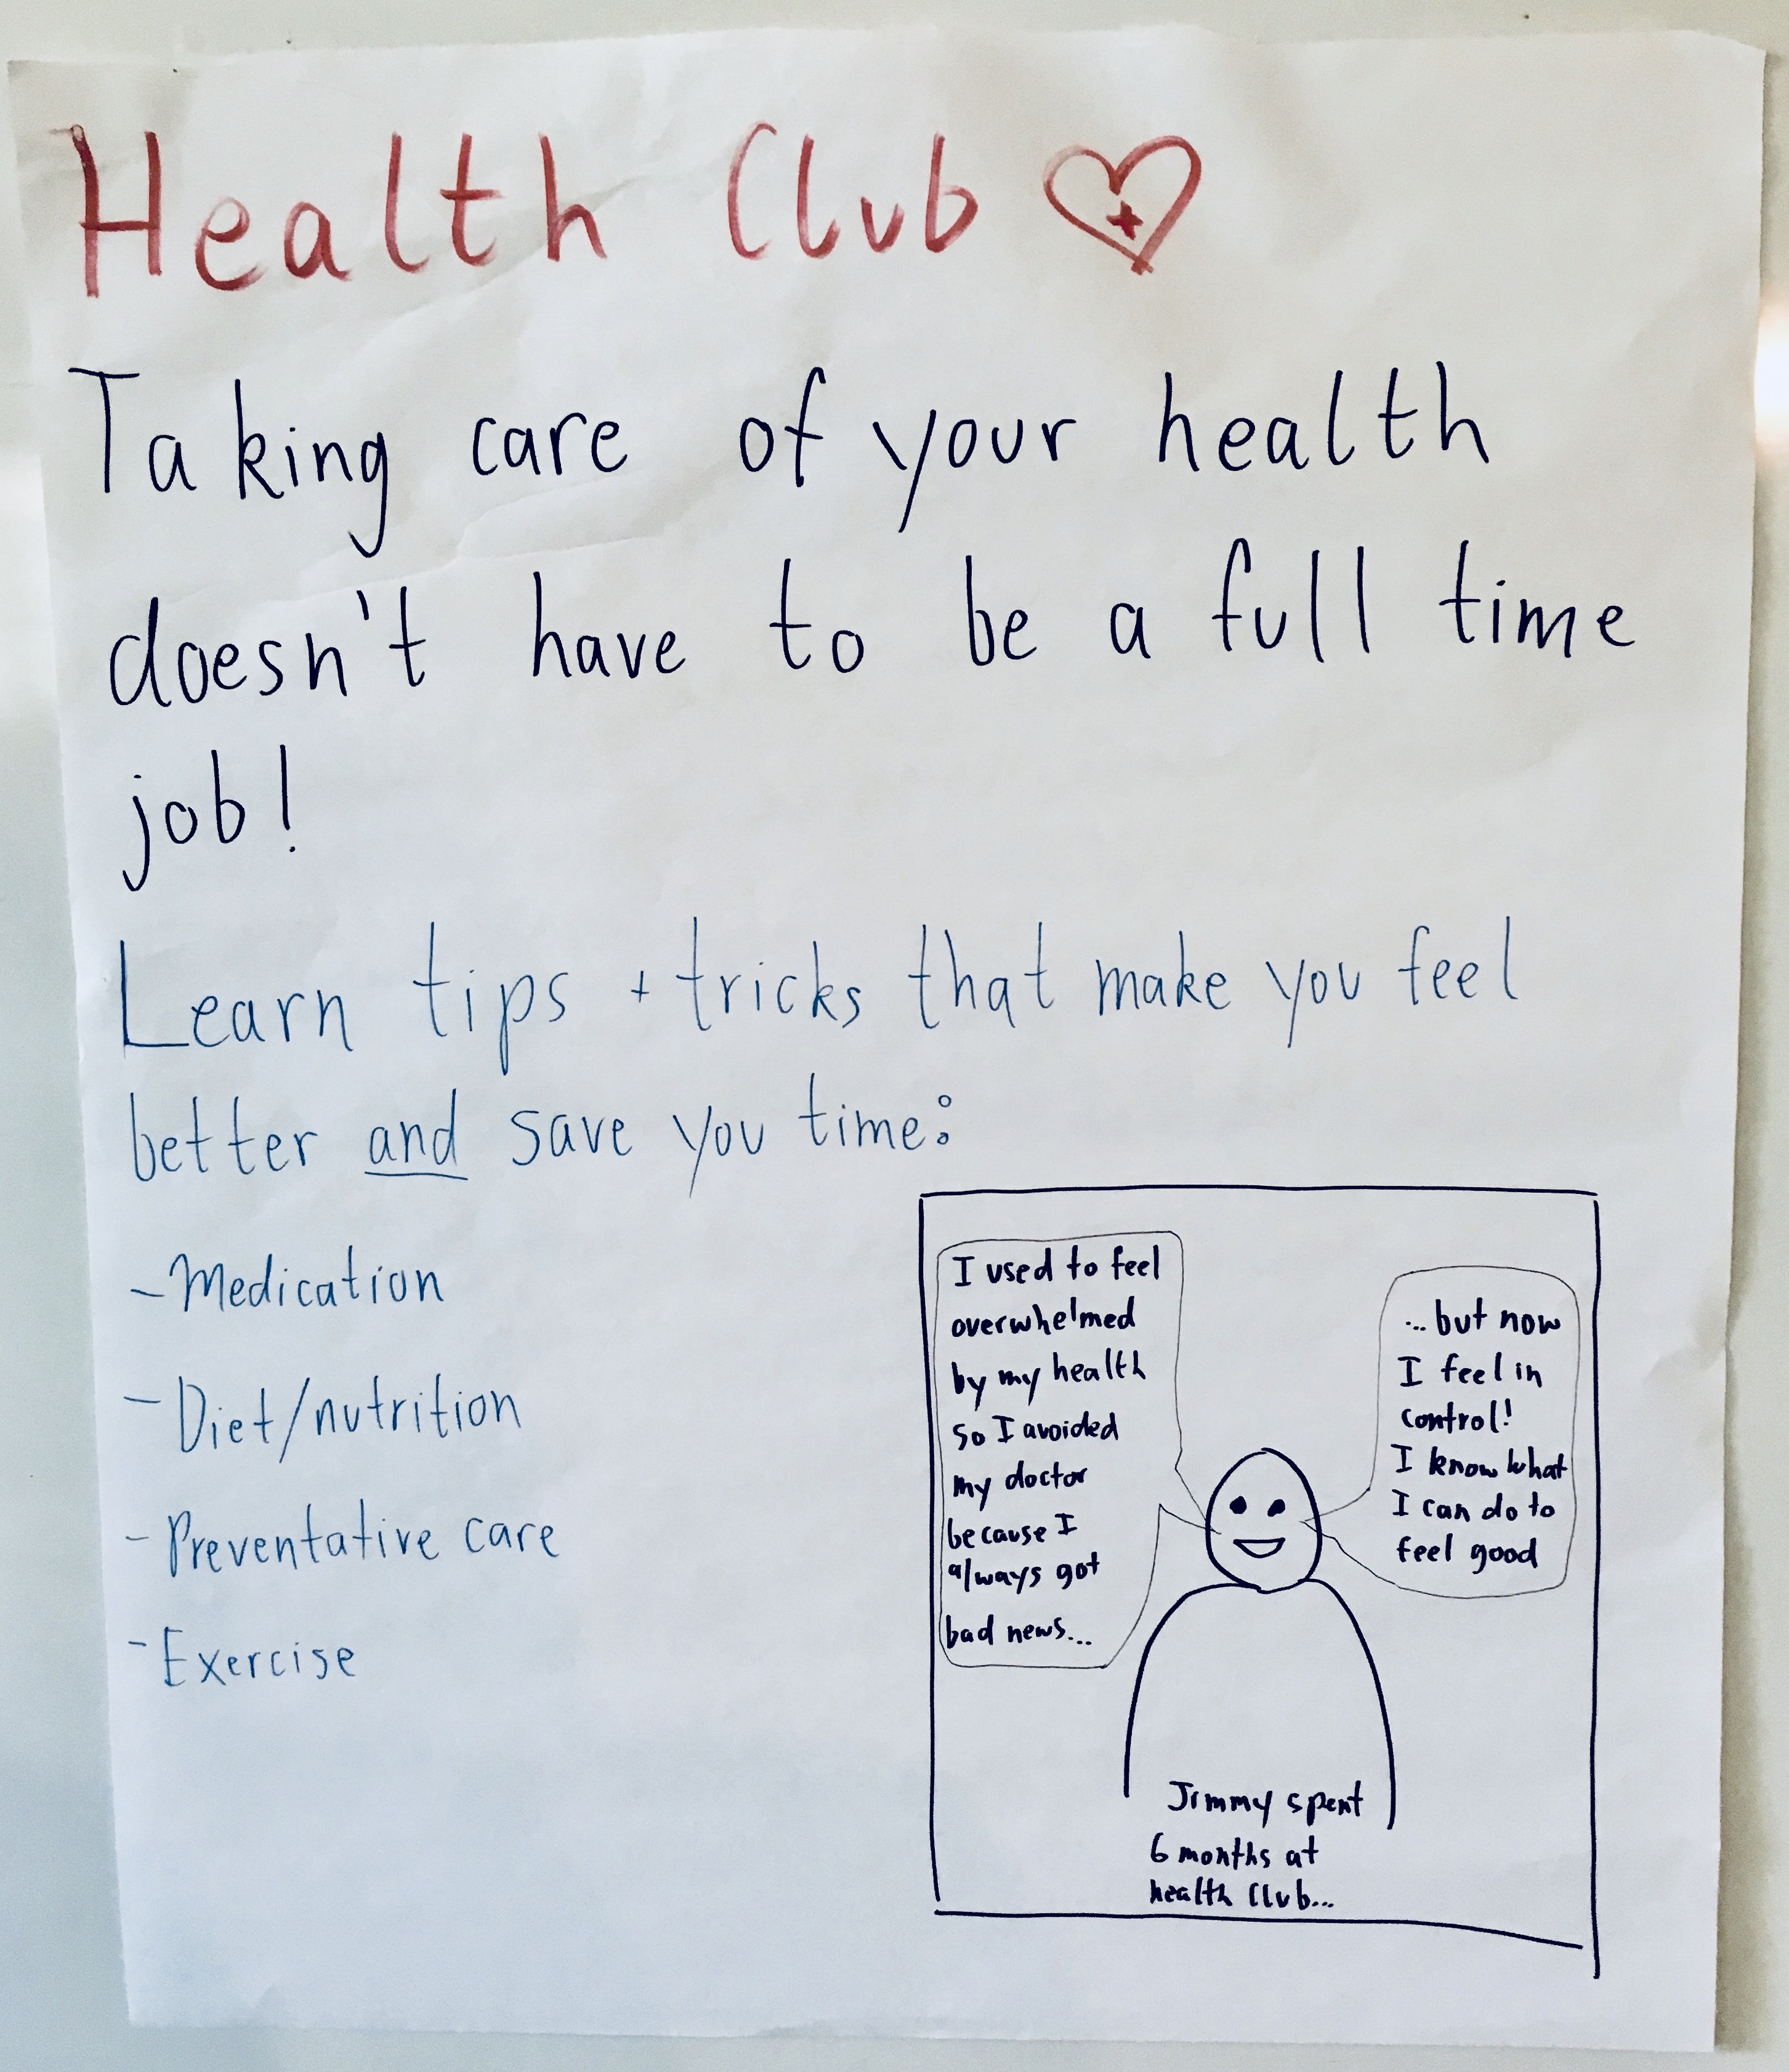 Health Club
Taking care of your health
doesn't have to be a full time
job!
Learn tips + tricks that make you feel
better and save you time:
- Medication
- Diet/nutrition
- Preventative care
- Exercise
I used to feel
overwhelmed
by my health
so I avoided
my doctor
because I
always got
bad news...
...but now
I feel in
control!
I know what
I can do to
feel good
Jimmy spent
6 months at
health Club...